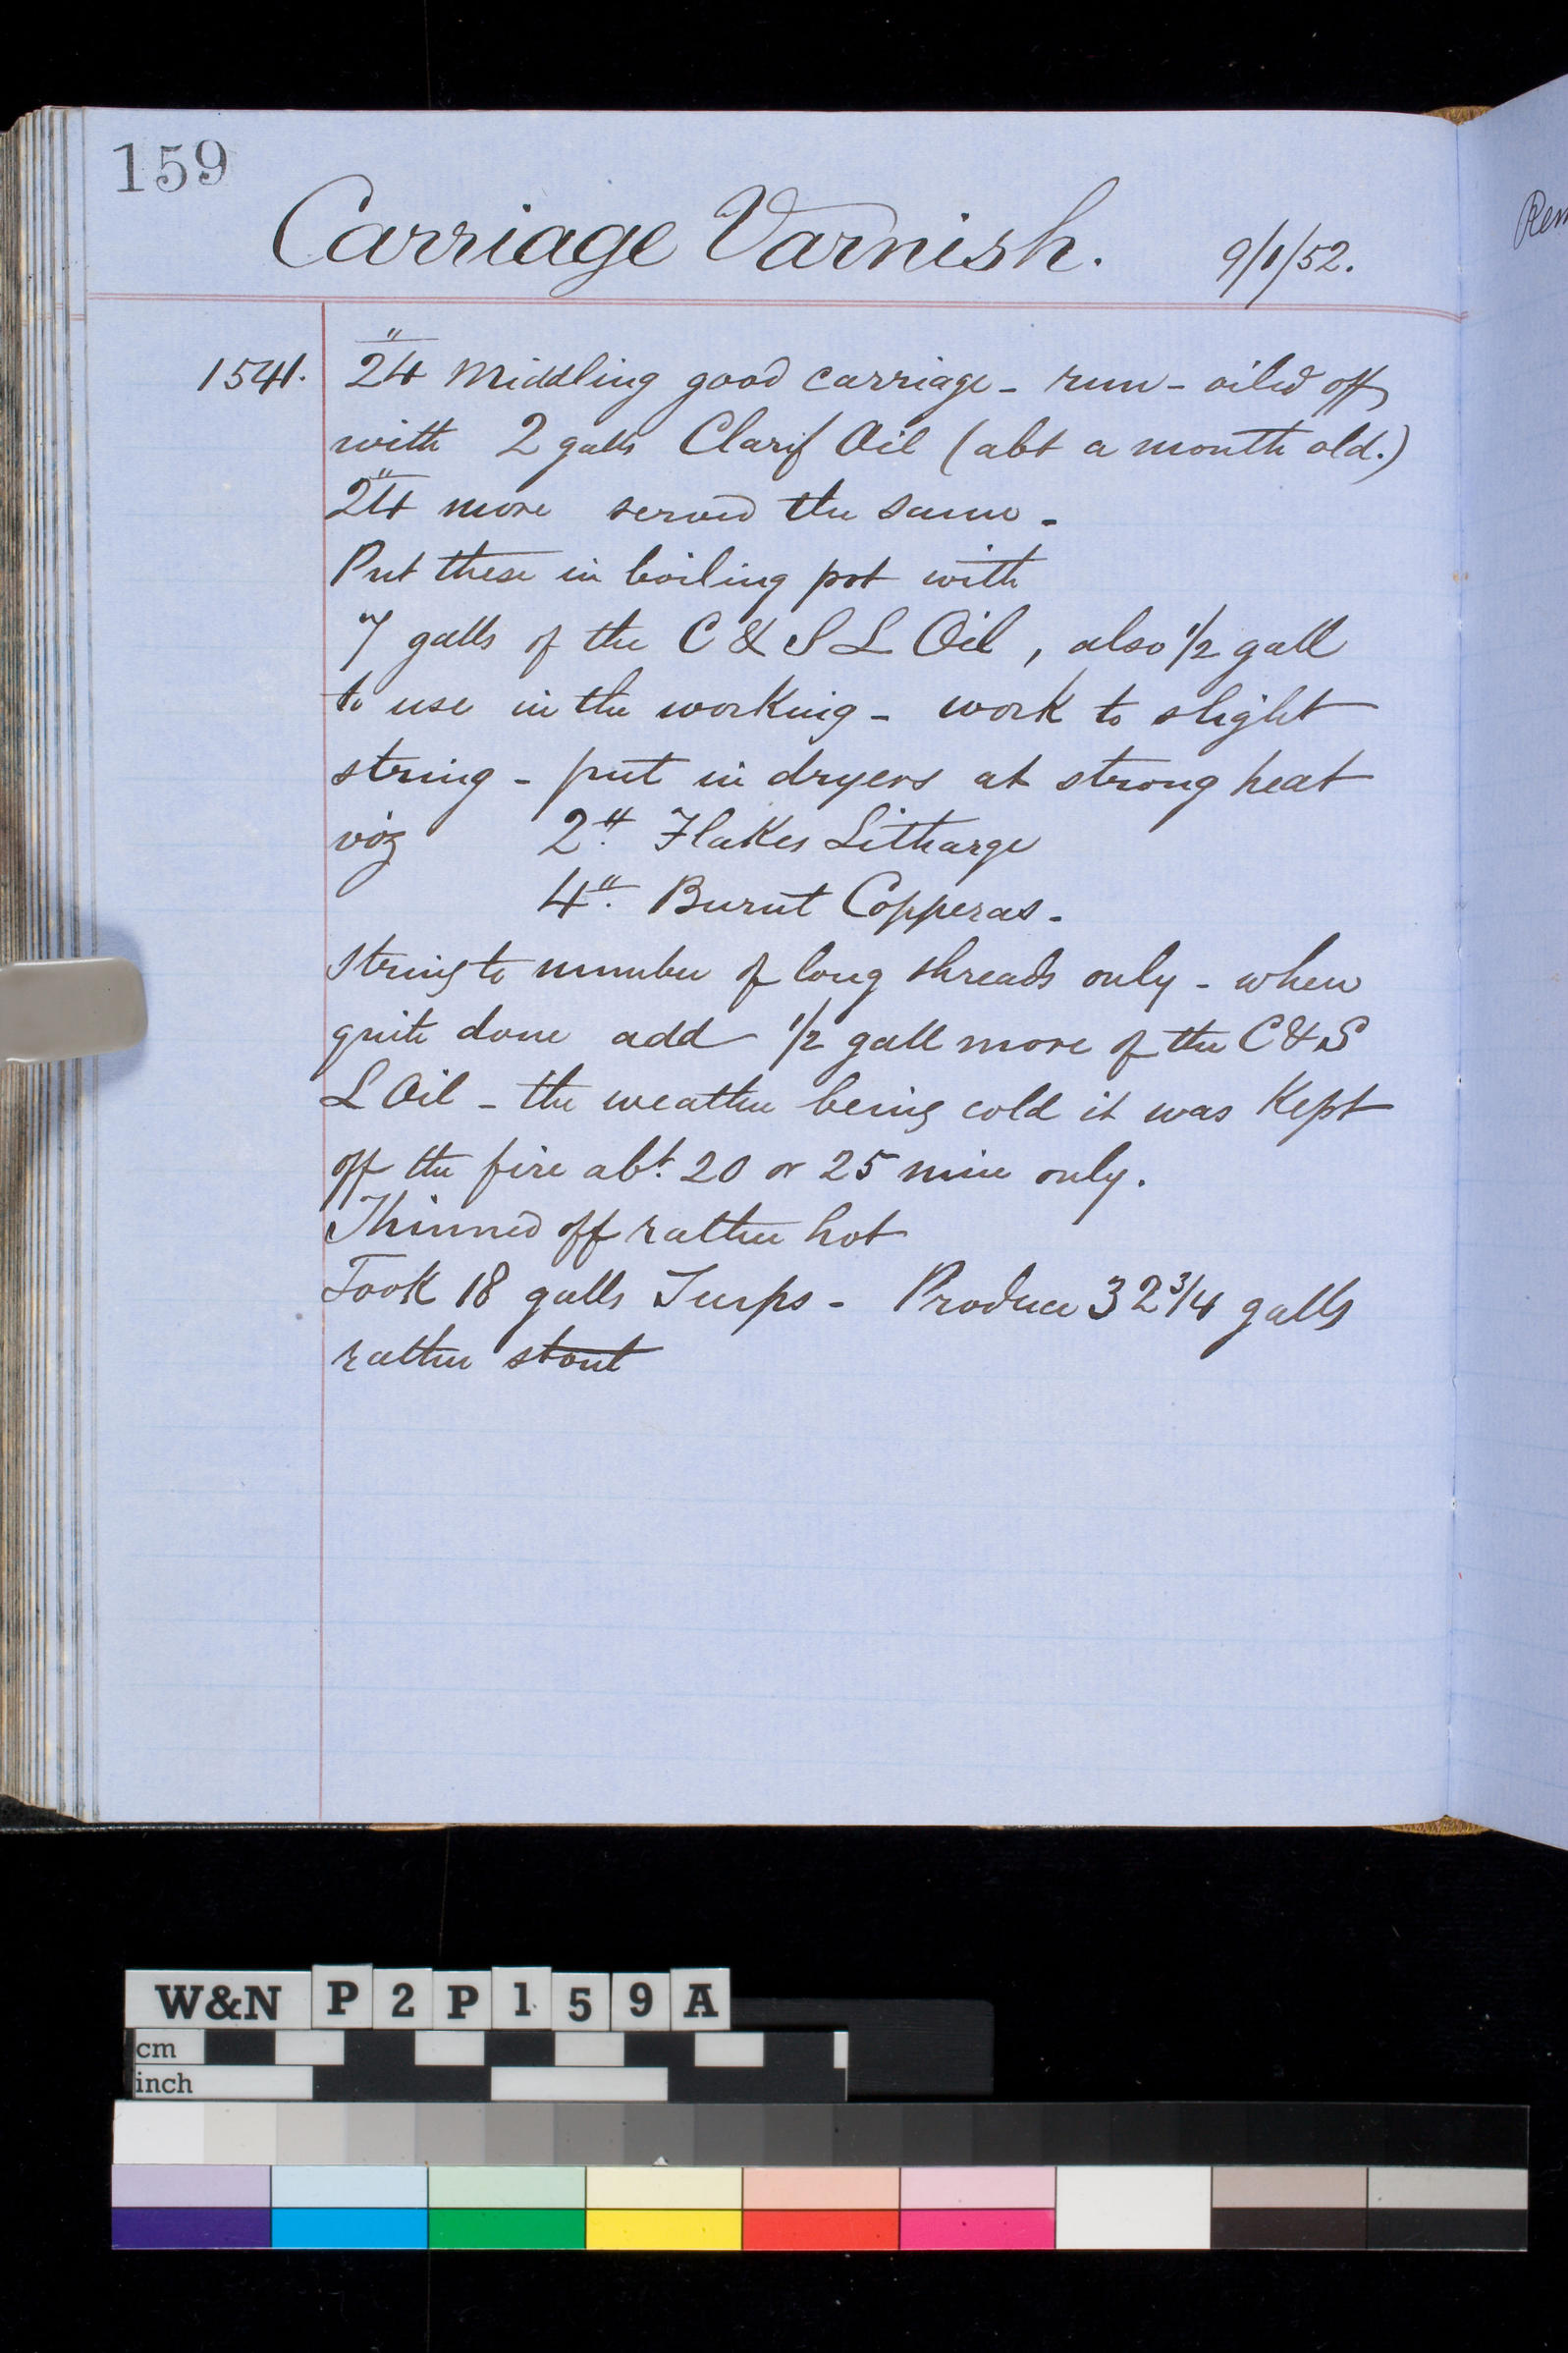 159
Carriage Varnish. 9/1/52.
1541. 24" Middling good carriage - run - oiled off
with 2 galls Clarif Oil (abt a month old.)
24" more served the same -
Put these in boiling pot with
7 galls of the C & S L Oil, also 1/2 gall
to use in the working - work to slight
string - put in dryers at strong heat
viz 2" Flakes Litharge
4" Burnt Copperas -
String to number of long threads only - when
quite done add 1/2 gall more of the C & S
L Oil - the weather being cold it was Kept
off the fire abt. 20 or 25 min only.
Thinned off rather hot
Took 18 galls Turps - Produce 32 3/4 galls
rather stout
Rem
W&N P2P159A
cm
inch